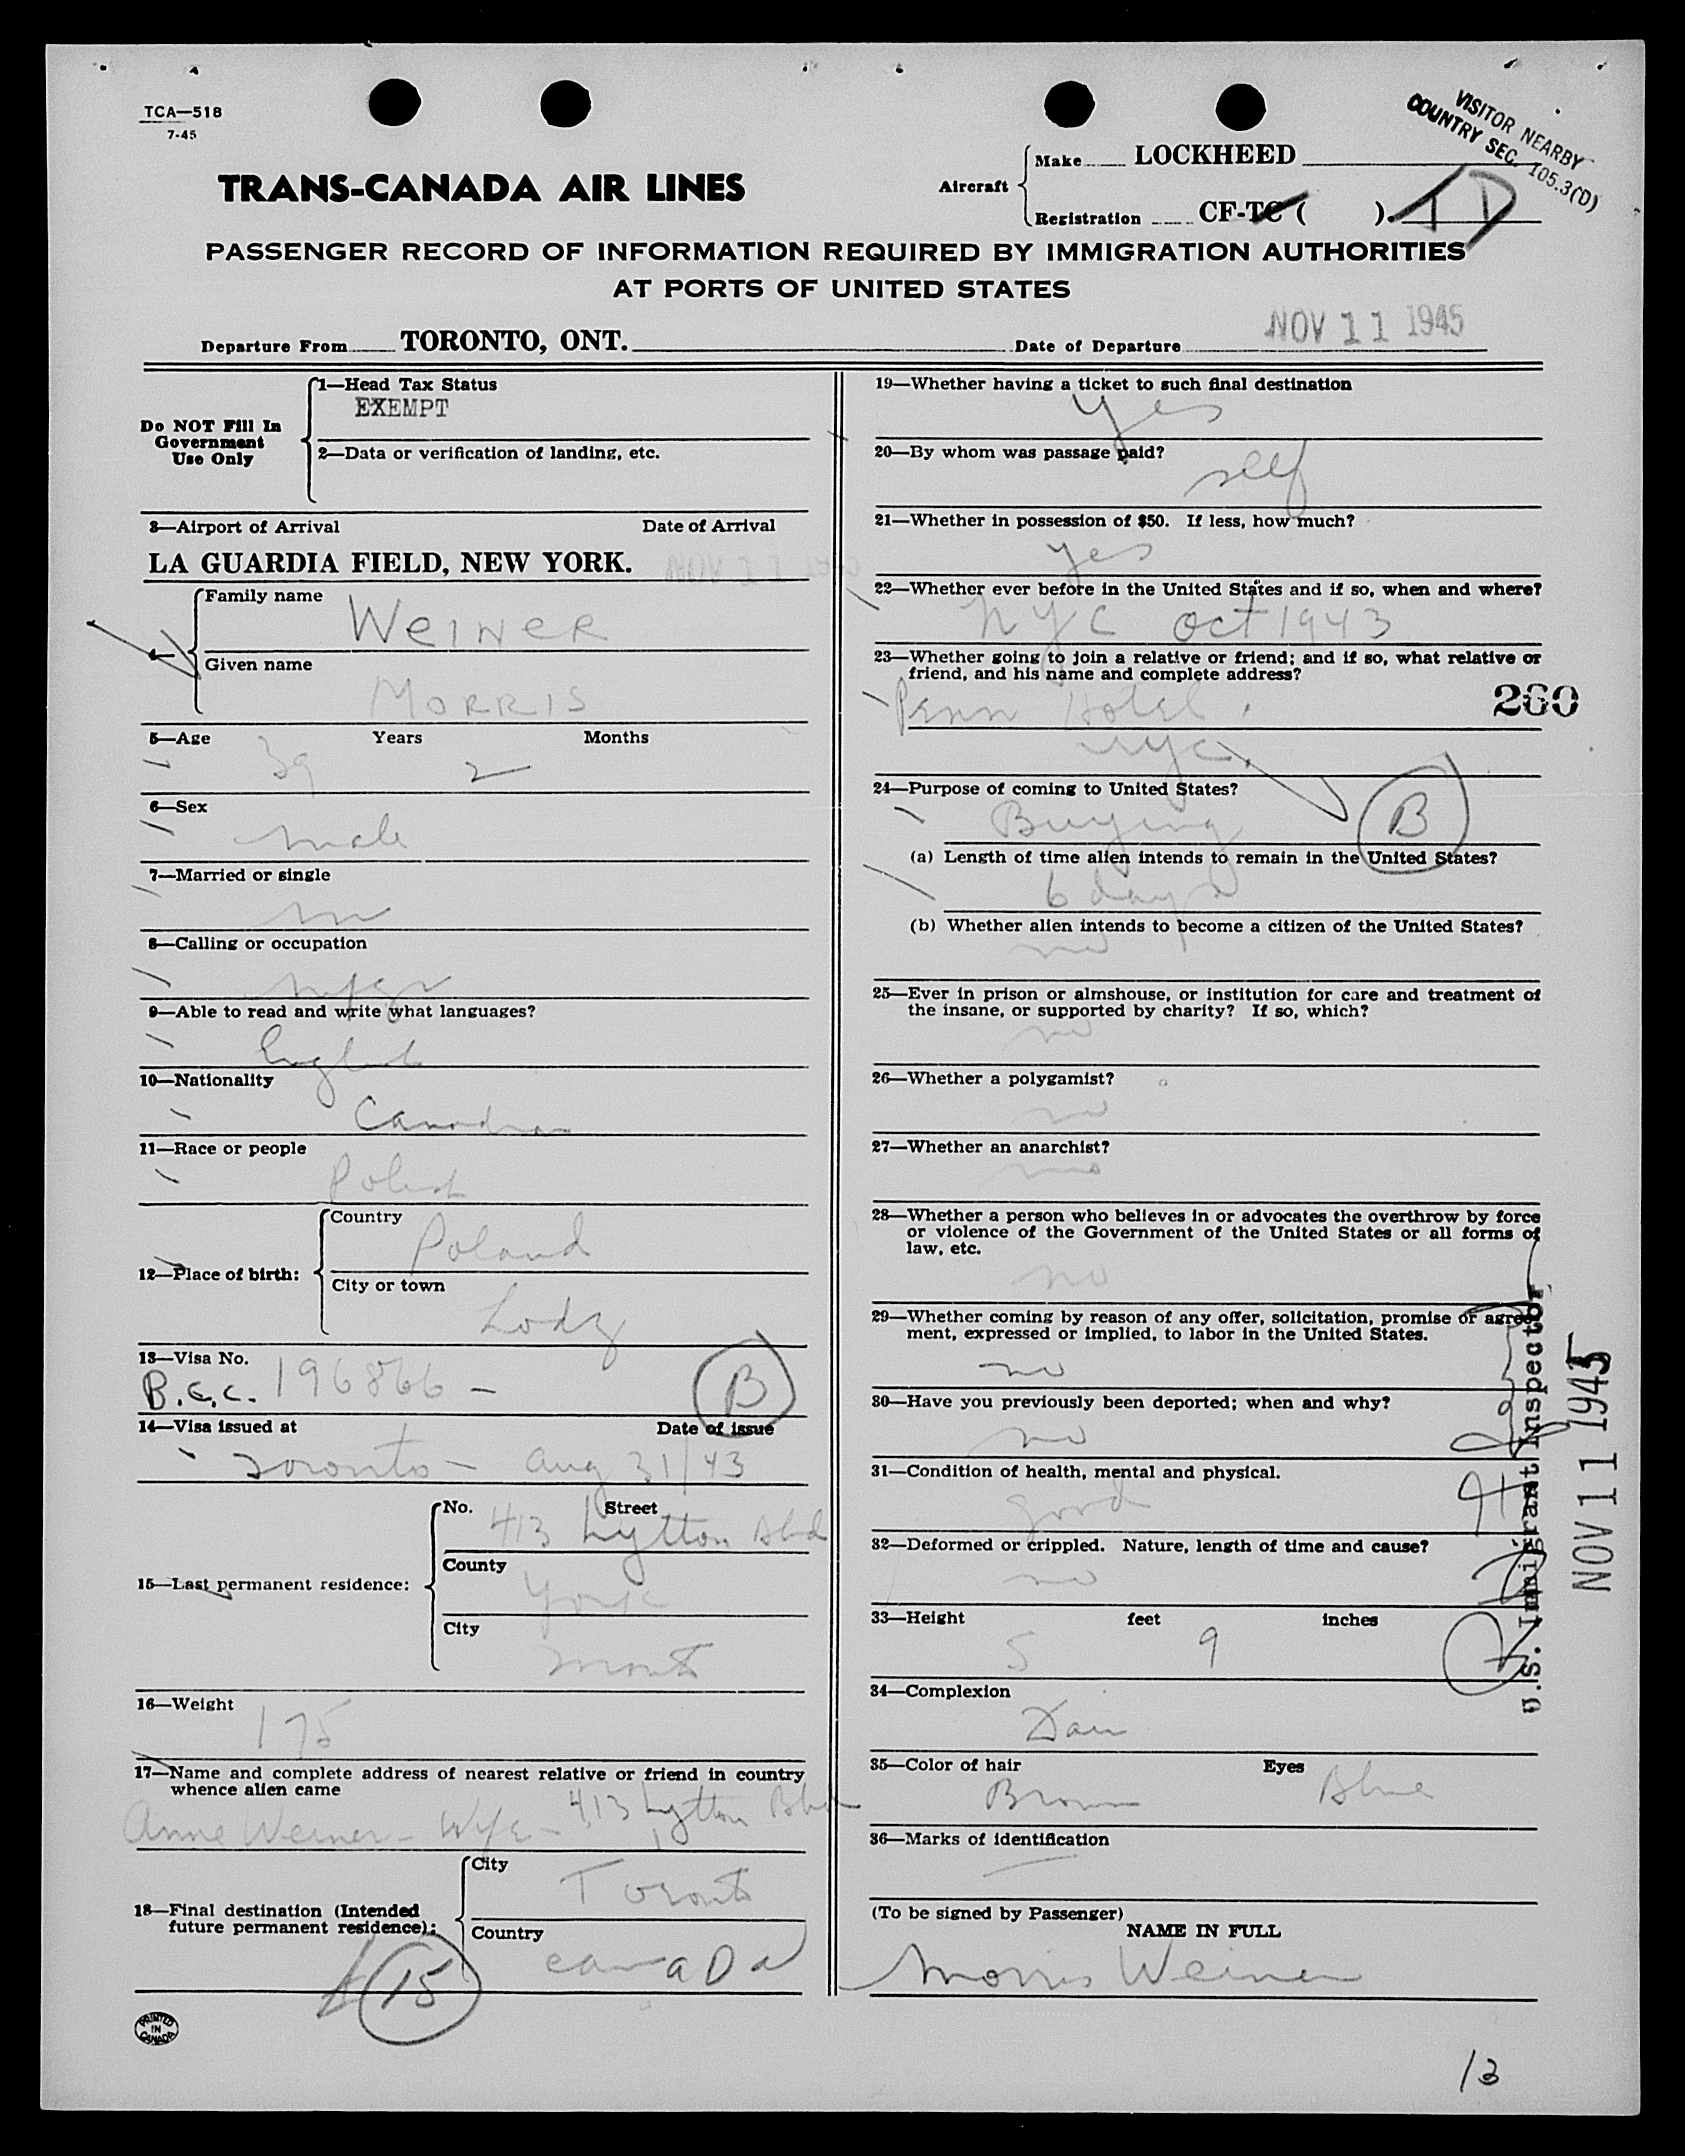 TCA—518
7-45
VISITOR NEARBY
COUNTRY SEC. 105.3(D)
TRANS-CANADA AIR LINES
Aircraft
Make LOCKHEED
Registration CF-TC ( ).
PASSENGER RECORD OF INFORMATION REQUIRED BY IMMIGRATION AUTHORITIES
AT PORTS OF UNITED STATES
Departure From TORONTO, ONT. Date of Departure NOV 11 1945
Do NOT Fill In
Government
Use Only
1—Head Tax Status
EXEMPT
2—Data or verification of landing, etc.
3—Airport of Arrival Date of Arrival
LA GUARDIA FIELD, NEW YORK. NOV 11
4—
Family name
Weiner
Given name
Morris
5—Age Years Months
39 2
6—Sex
male
7—Married or single
m
8—Calling or occupation
mfgr
9—Able to read and write what languages?
English
10—Nationality
Canadian
11—Race or people
Polish
12—Place of birth:
Country
Poland
City or town
Lodz
13—Visa No.
B.C.C. 196866 — B
14—Visa issued at Date of issue
Toronto — Aug 31/43
15—Last permanent residence:
No. Street
413 Lytton Blvd
County
York
City
16—Weight
175
17—Name and complete address of nearest relative or friend in country
whence alien came
Anne Weiner - Wife - 413 Lytton Blvd
18—Final destination (Intended
future permanent residence):
City
Toronto
Country
Canada
15
PRINTED
IN
CANADA
19—Whether having a ticket to such final destination
Yes
20—By whom was passage paid?
self
21—Whether in possession of $50. If less, how much?
yes
22—Whether ever before in the United States and if so, when and where?
NYC Oct 1943
23—Whether going to join a relative or friend; and if so, what relative or
friend, and his name and complete address?
Penn Hotel.
260
NYC.
24—Purpose of coming to United States?
Buying B
(a) Length of time alien intends to remain in the United States?
6 days
(b) Whether alien intends to become a citizen of the United States?
no
25—Ever in prison or almshouse, or institution for care and treatment of
the insane, or supported by charity? If so, which?
no
26—Whether a polygamist?
no
27—Whether an anarchist?
no
28—Whether a person who believes in or advocates the overthrow by force
or violence of the Government of the United States or all forms of
law, etc.
no
29—Whether coming by reason of any offer, solicitation, promise or agree-
ment, expressed or implied, to labor in the United States.
no
30—Have you previously been deported; when and why?
no
31—Condition of health, mental and physical.
good
32—Deformed or crippled. Nature, length of time and cause?
no
33—Height feet inches
5 9
34—Complexion
35—Color of hair Eyes
Brown Blue
36—Marks of identification
(To be signed by Passenger)
NAME IN FULL
Morris Weiner
U.S. Immigrant Inspector
NOV 11 1945
13